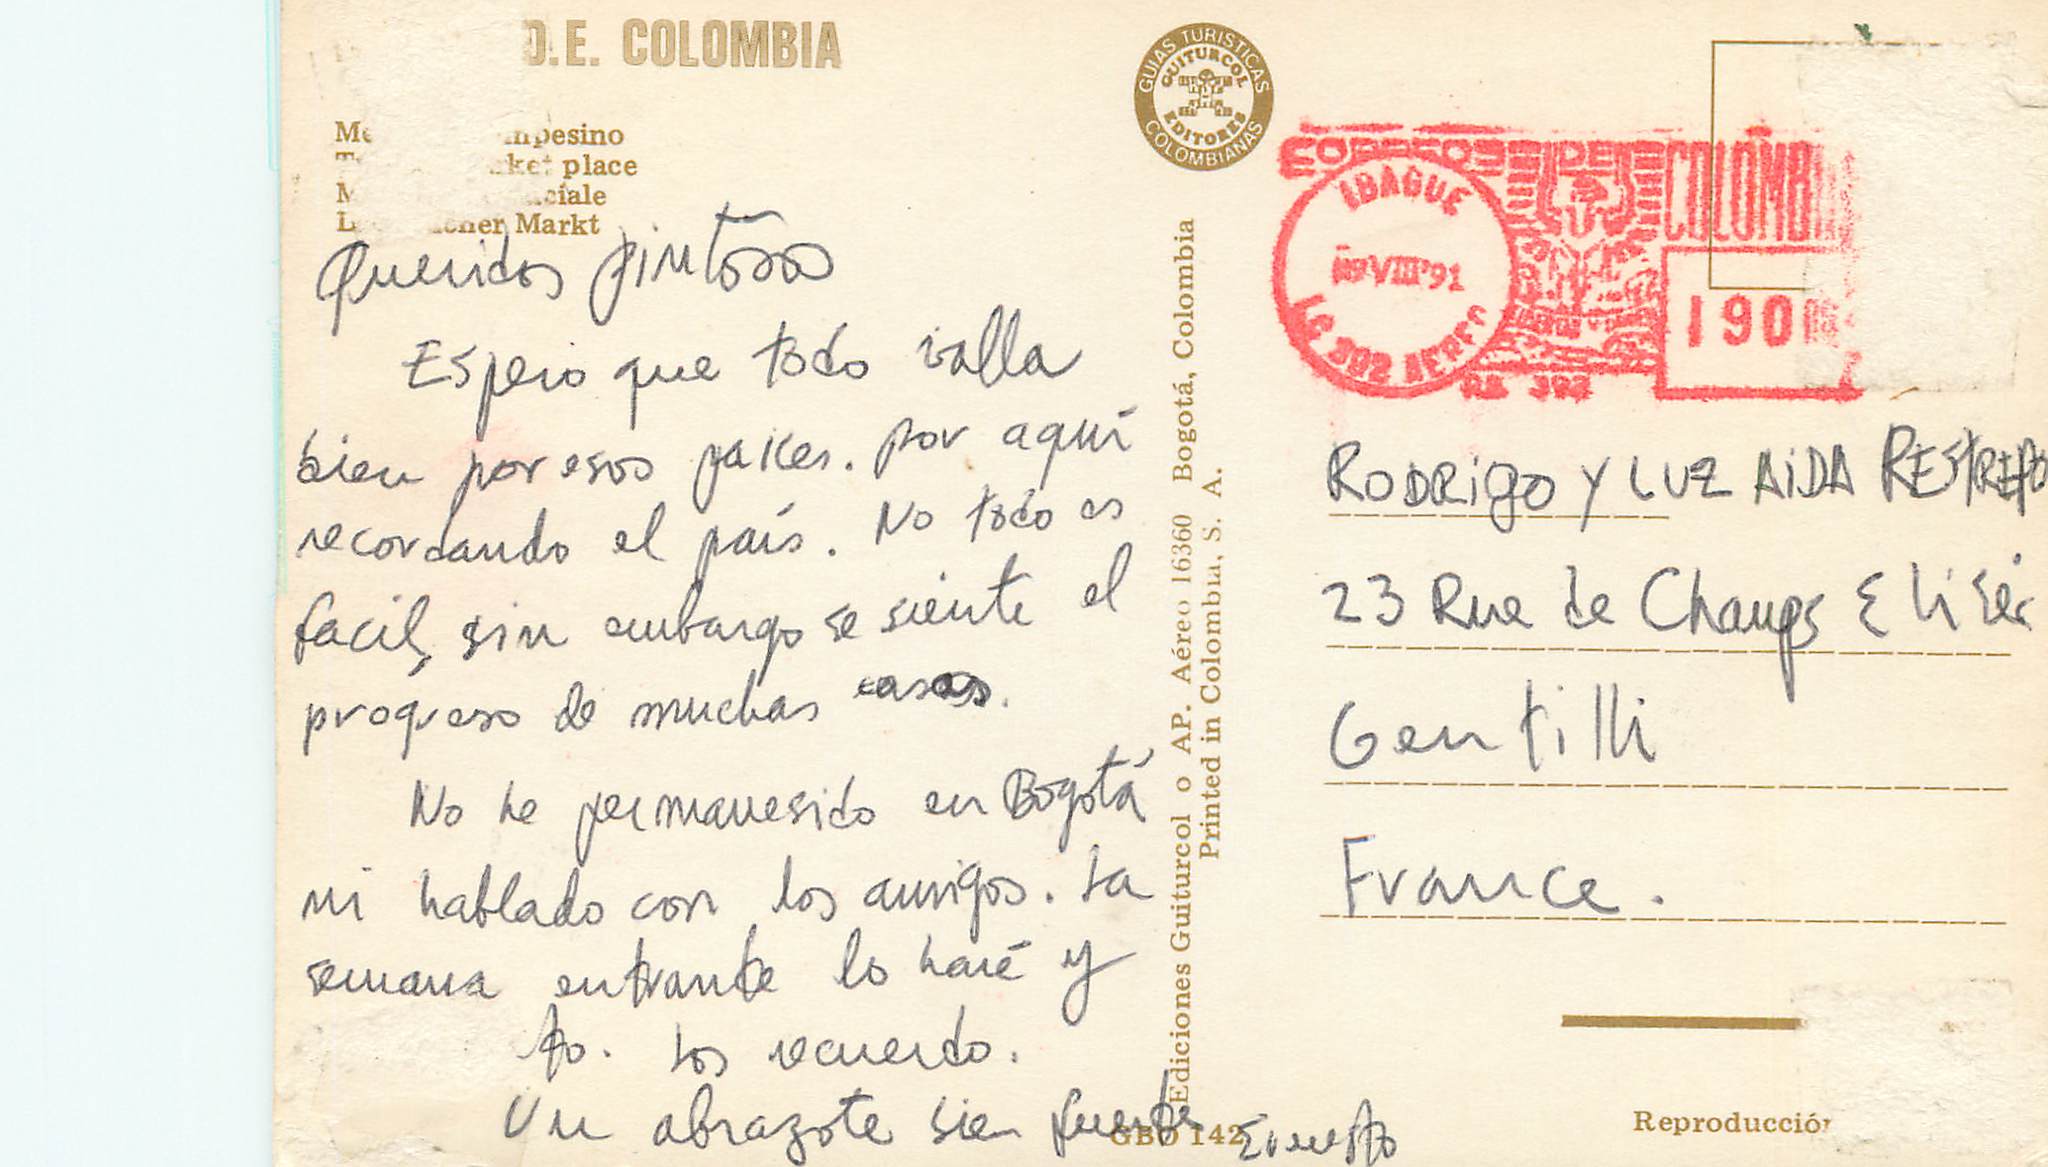 O.E. COLOMBIA
mpesino
place
ciale
Markt
GUIAS TURISTICAS
GUITURCOL
EDITORES
COLOMBIANAS
CORREOS DE COLOMBIA
IBAGUE
VIII'91
190
Queridos pintosos
Espero que todo valla
bien por esos paises. por aquí
recordando el país. No todo es
facil, sin embargo se siente el
progreso de muchas casas.
No he permanesido en Bogotá
ni hablado con los amigos. La
semana entrante lo haré y
Los recuerdo.
Un abrazote bien fuerte Ernesto
Ediciones Guiturcol o AP. Aéreo 16360 Bogotá, Colombia
Printed in Colombia, S. A.
GBO 142
RODRIGO Y LUZ AIDA RESTREPO
23 Rue de Champs Elisée
Gentilli
France.
Reproducción